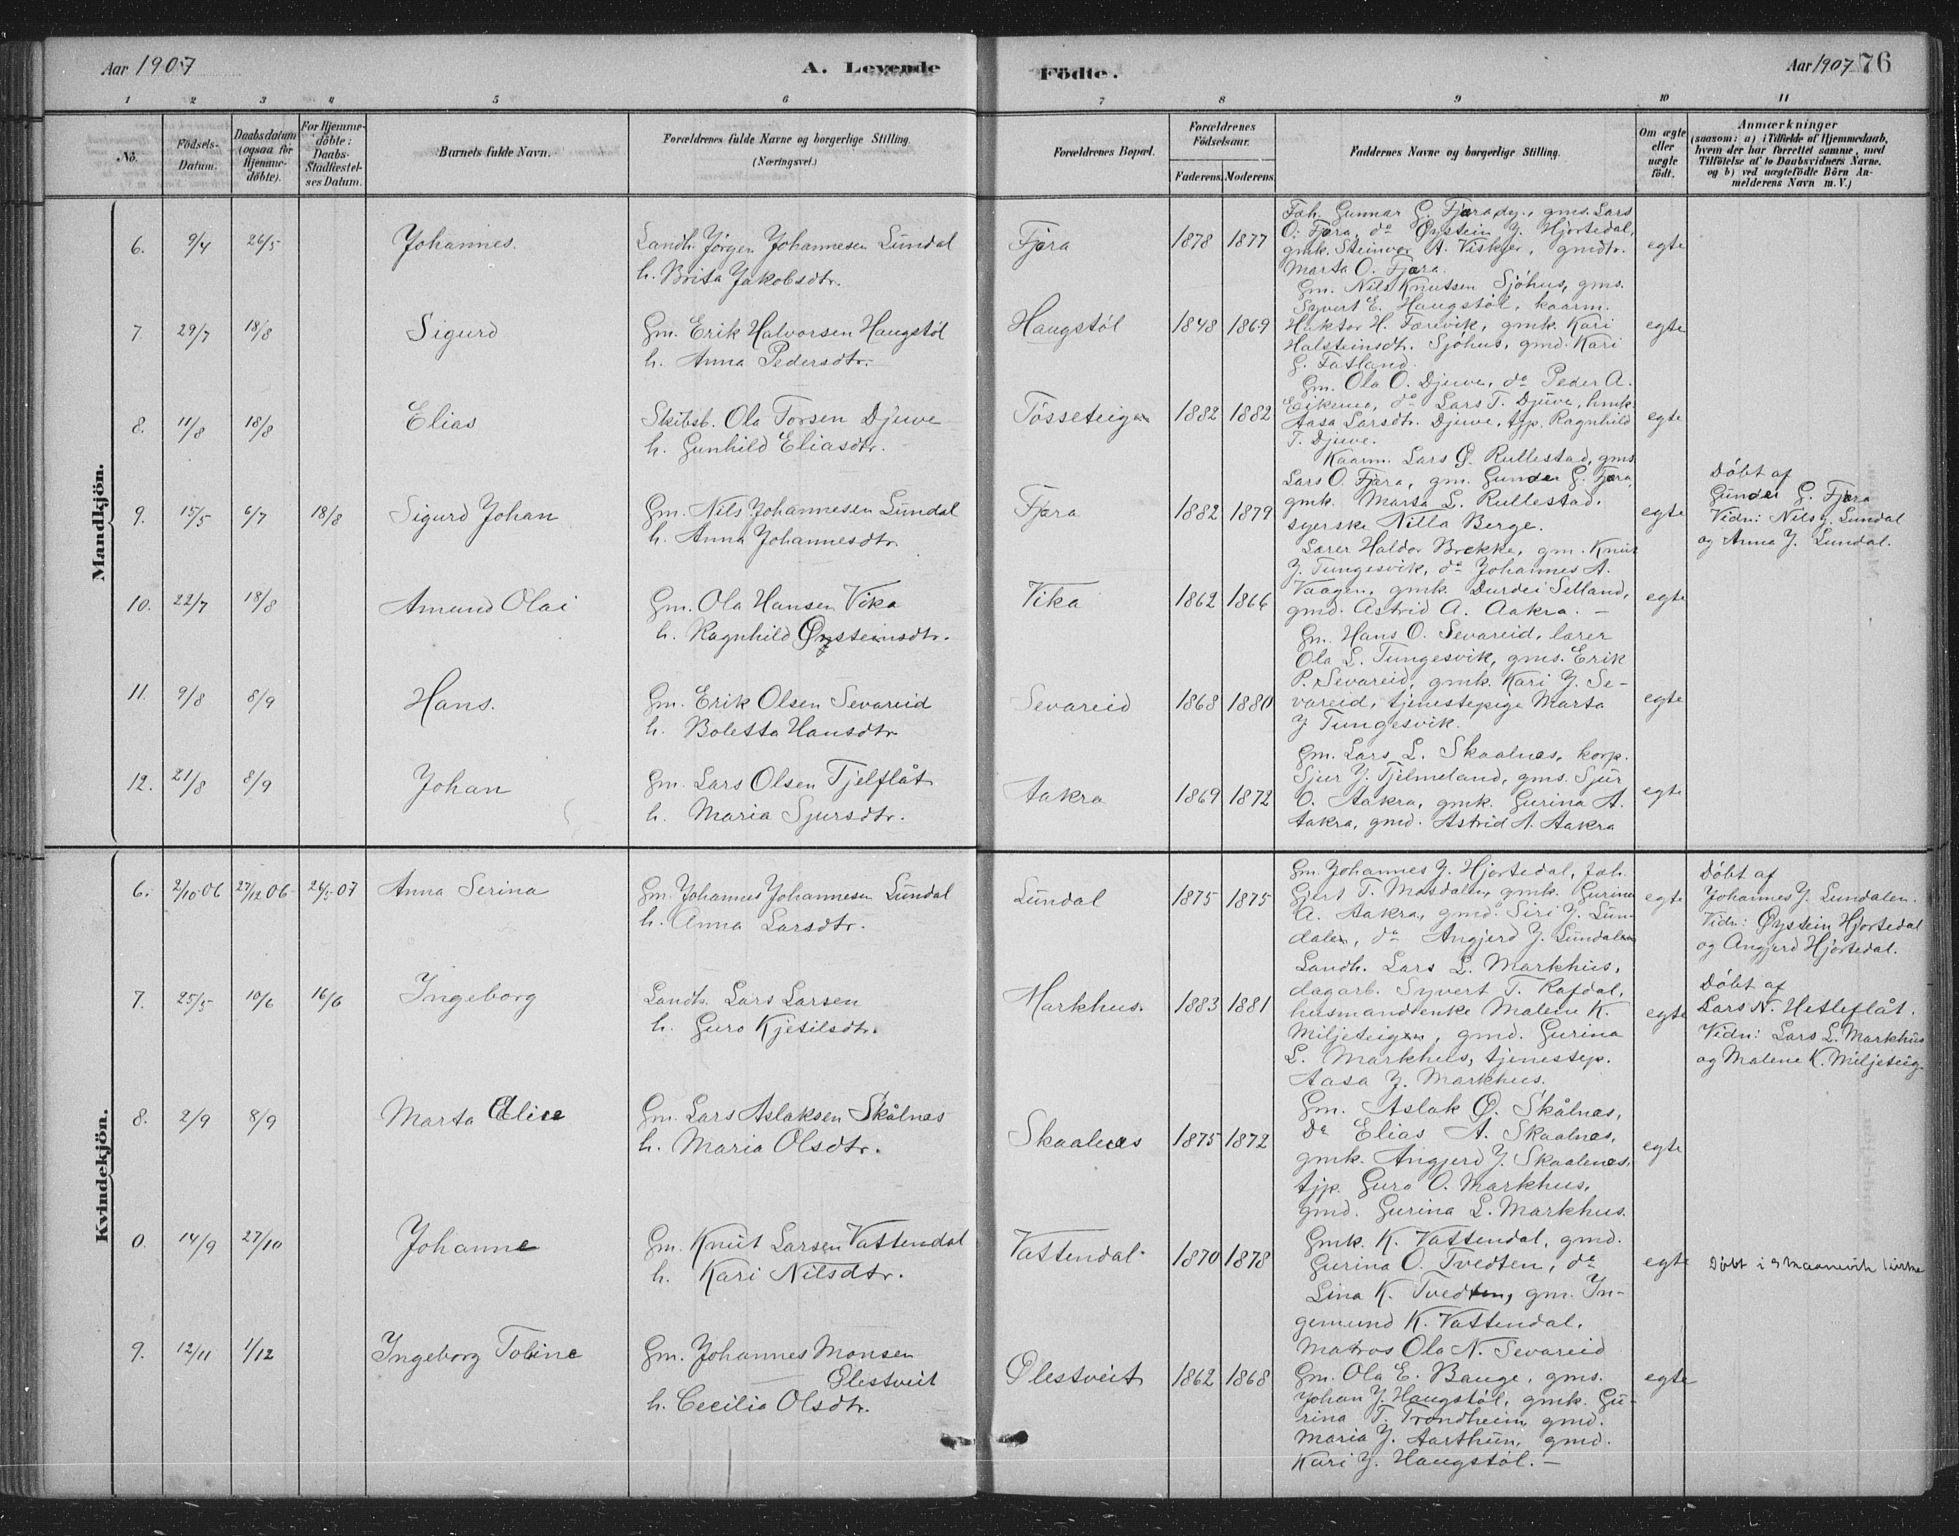 Aar 1907
A. Levende
Födte.
Aar 1907
76
1 2 3 4 5 6 7 8 9 10 11
No.
Födsels-
Datum.
Daabsdatum
(ogsaa för
Hjemme-
döbte).
For Hjemme-
döbte:
Daabs-
Stadfæstel-
ses Datum.
Barnets fulde Navn.
Forældrenes fulde Navne og borgerlige Stilling.
(Næringsvei.)
Forældrenes Bopæl.
Forældrenes
Födselsaar.
Faderens. Moderens.
Faddernes Navne og borgerlige Stilling.
Om ægte
eller
uægte
födt.
Anmærkninger
(saasom: a) i Tilfælde af Hjemmedaab,
hvem der har forrettet samme, med
Tilföielse af to Daabsvidners Navne.
og b) ved uægtefödte Börn An-
melderens Navn m. V.)
Mandkjön.
6. 9/4 26/5 Johannes.
Landh. Jørgen Johannesen Lundal
h. Brita Jakobsdtr.
Fjæra 1878 1877
Fah. Gunnar G. Fjæradg., gms. Lars
O. Fjæra, do Øystein J. Hjortedal,
gmk. Steinvor A. Viskjer, gmdtr.
Marta O. Fjæra.
egte
7. 29/7 18/8 Sigurd
Gm. Erik Halvorsen Haugstöl
h. Anna Pedersdtr.
Haugstöl 1848 1869
Gm. Nils Knutsen Sjöhus, gms.
Syvert E. Haugstöl, kaarm.
Haktor H. Færevik, gmk. Kari
Halsteinsdt. Sjöhus, gmd. Kari
G. Fatland.
egte
8. 11/8 18/8 Elias
Skibsb. Ola Torsen Djuve
h. Gunhild Eliasdtr.
Tösseteigen 1882 1882
Gm. Ola O. Djuve, do Peder A.
Eikemo, do Lars T. Djuve, hmk.
Aasa Larsdtr. Djuve, tjp. Ragnhild
T. Djuve.
egte
9. 15/5 6/7 18/8 Sigurd Johan
Gm. Nils Johannesen Lundal
h. Anna Johannesdtr.
Fjæra 1882 1879
Kaarm. Lars Ø. Rullestad, gms.
Lars O. Fjæra, gm. Gunder G. Fjæra,
gmk. Marta L. Rullestad,
syerske Nilla Berge.
egte
Döbt af
Gunder G. Fjæra
Vidn: Nils J. Lundal
og Anna J. Lundal.
10. 22/7 18/8 Amund Olai
Gm. Ola Hansen Vika
h. Ragnhild Øysteinsdtr.
Vika 1862 1866
Lærer Haldor Brekke, gm. Knut
J. Tungesvik, do Johannes A.
Vaagen, gmk. Durdei Selland,
gmd. Astrid A. Aakra. –
egte
11. 9/8 8/9 Hans.
Gm. Erik Olsen Sevareid
h. Boletta Hansdtr.
Sevareid 1868 1880
Gm. Hans O. Sevareid, lærer
Ola L. Tungesvik, gms. Erik
P. Sevareid, gmk. Kari J. Se-
vareid, tjenestepige Marta
J Tungesvik.
egte
12. 21/8 8/9 Johan
Gm. Lars Olsen Tjelflåt
h. Maria Sjursdtr.
Aakra 1869 1872
Gm. Lars L. Skaalnes, korp.
Sjur J. Tjelmeland, gms. Sjur
O. Aakra, gmk. Gurina A.
Aakra, gmd. Astrid A. Aakra
egte
Kvindekjön.
6. 2/10 06 27/12 06 26/5 07 Anna Serina
Gm. Johannes Johannesen Lundal
h. Anna Larsdtr.
Lundal 1875 1875
Gm. Johannes J. Hjortedal, fah.
Gjert T. Mosdalen, gmk. Gurine
A. Aakra, gmd. Siri J. Lun-
dalen, do Angjerd J. Lundalen
egte
Döbt af
Johannes J. Lundalen.
Vidn: Øystein Hjortedal
og Angjerd Hjortedal.
7. 25/5 10/6 16/6 Ingeborg
Landh. Lars Larsen
h. Guro Kjetilsdtr.
Markhus. 1883 1881
Landh. Lars L. Markhus,
dagarb. Syvert T. Rafdal,
husmandsenke Malene K.
Miljeteigen, gmd. Gurina
L. Markhus, tjenestep.
Aasa J. Markhus.
egte
Döbt af
Lars N. Hetleflåt.
Vidn: Lars L. Markhus
og Malene K. Miljeteig.
8. 2/9 8/9 Marta Elise
Gm. Lars Aslaksen Skålnes
h. Maria Olsdtr.
Skaalnes 1875 1872
Gm. Aslak Ø. Skålnes,
Do Elias A. Skaalnes,
gmk. Angjerd J. Skaalenes,
tjp. Guro O. Markhus,
gmd. Gurina L. Markhus.
egte
0. 14/9 27/10 Johanne
Gm. Knut Larsen Vattendal
h. Kari Nilsdtr.
Vattendal. 1870 1878
Gmk. K. Vattendal, gmd.
Gurina O. Tvedten, do
Lina K. Tvedten, gm. In-
gemund K. Vattendal.
Matros Ola N. Sevareid
egte
Döbt i Maanevik kirke
9. 12/11 1/12 Ingeborg Tobine
Gm. Johannes Monsen
Ølestveit
h. Cecilia Olsdtr.
Ølestveit 1862 1868
Gm. Ola E. Bauge, gms.
Johan J. Haugstöl, gmk. Gu-
rina T. Trondheim, gmd.
Maria J. Aarthun, gmd.
Kari J. Haugstöl. –
egte